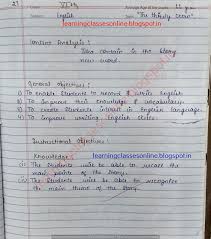 27
Class VIth Average Age of the pupils 11 yrs
Subject English Topic "The Thirsty Crow"
learningclassesonline.blogspot.in
Content Analysis :
contain in the story
new word.
General Objectives :
1) To enable students to record & write English
2) To improve their knowledge & vocabulary
3) To create students interest in English language
4) To improve writing English skills
Instructional Objectives :
Knowledge : learningclassesonline.blogspot.in
(i) The students will be able to recall the
main points of the story.
(ii) The students will be able to recognise
the main theme of the story.